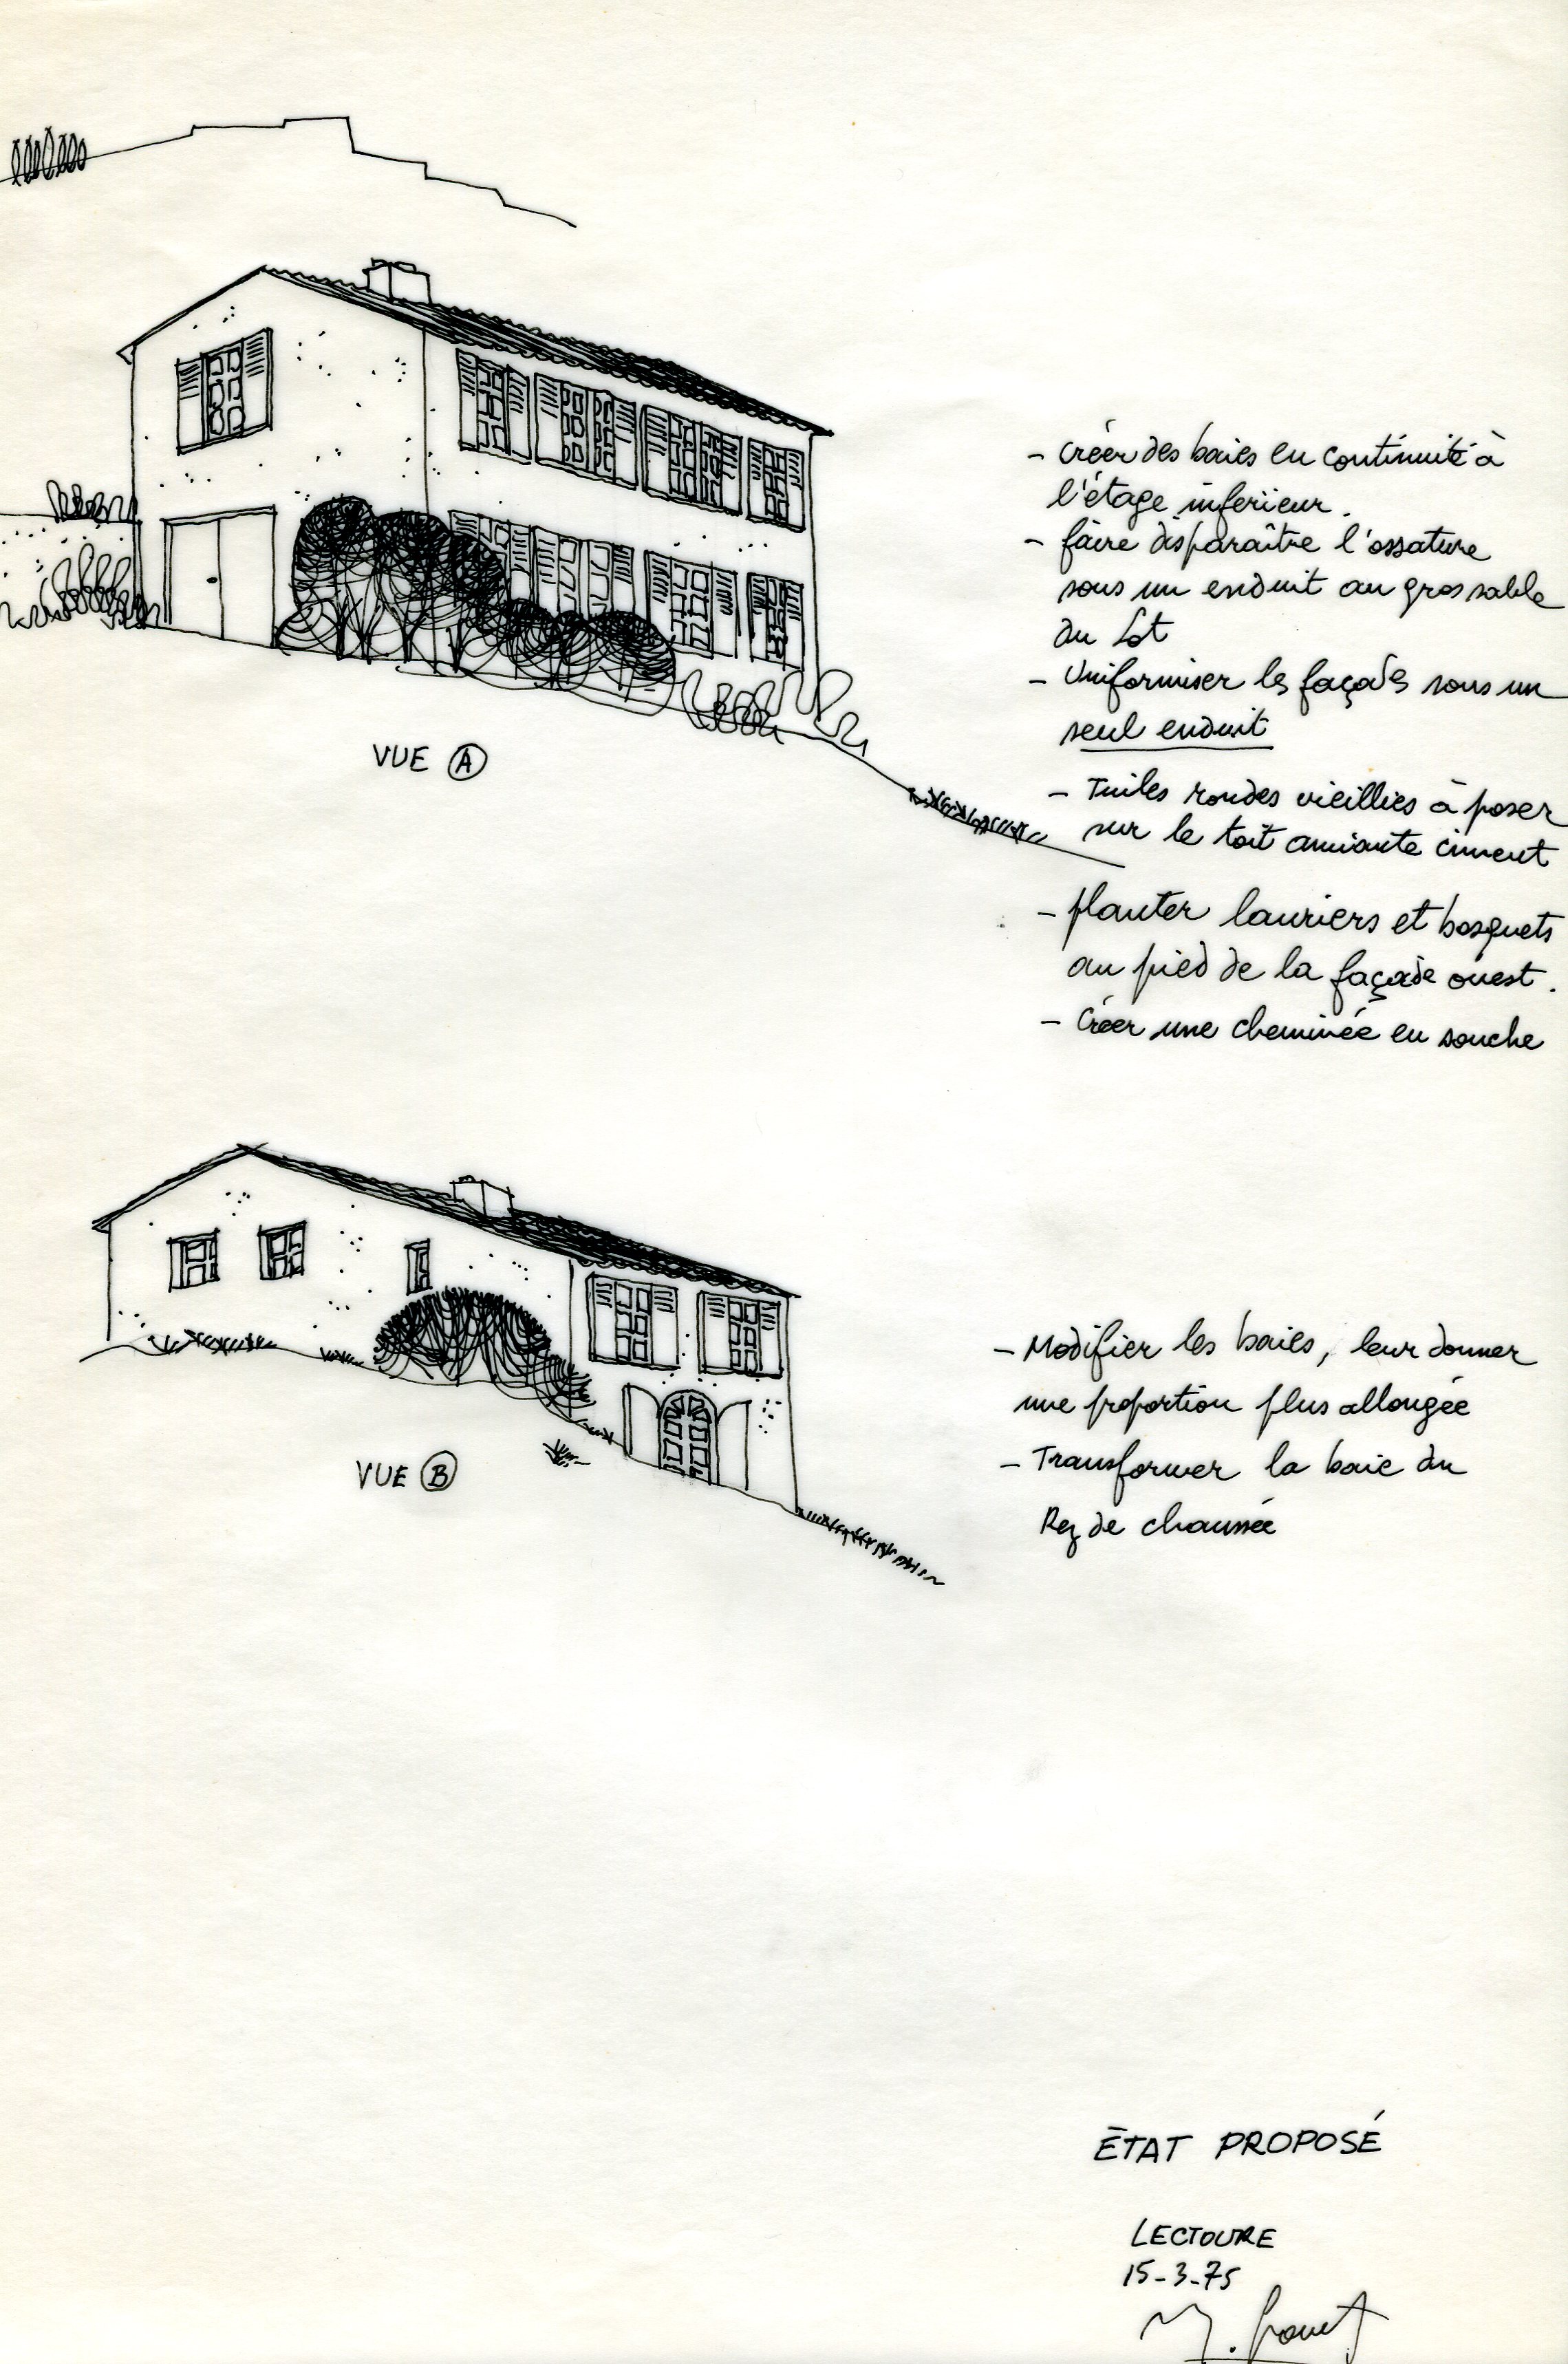 - Créer des baies en continuité à
l'étage inférieur.
- faire disparaître l'ossature
sous un enduit au gros sable
du Lot
- Uniformiser les façades sous un
seul enduit
- Tuiles rondes vieillies à poser
sur le toit amiante ciment
VUE A
- planter lauriers et bosquets
au pied de la façade ouest.
- Créer une cheminée en souche
- Modifier les baies, leur donner
une proportion plus allongée
- Transformer la baie du
Rez de chaussée
VUE B
ÉTAT PROPOSÉ
LECTOURE
15-3-75
M.